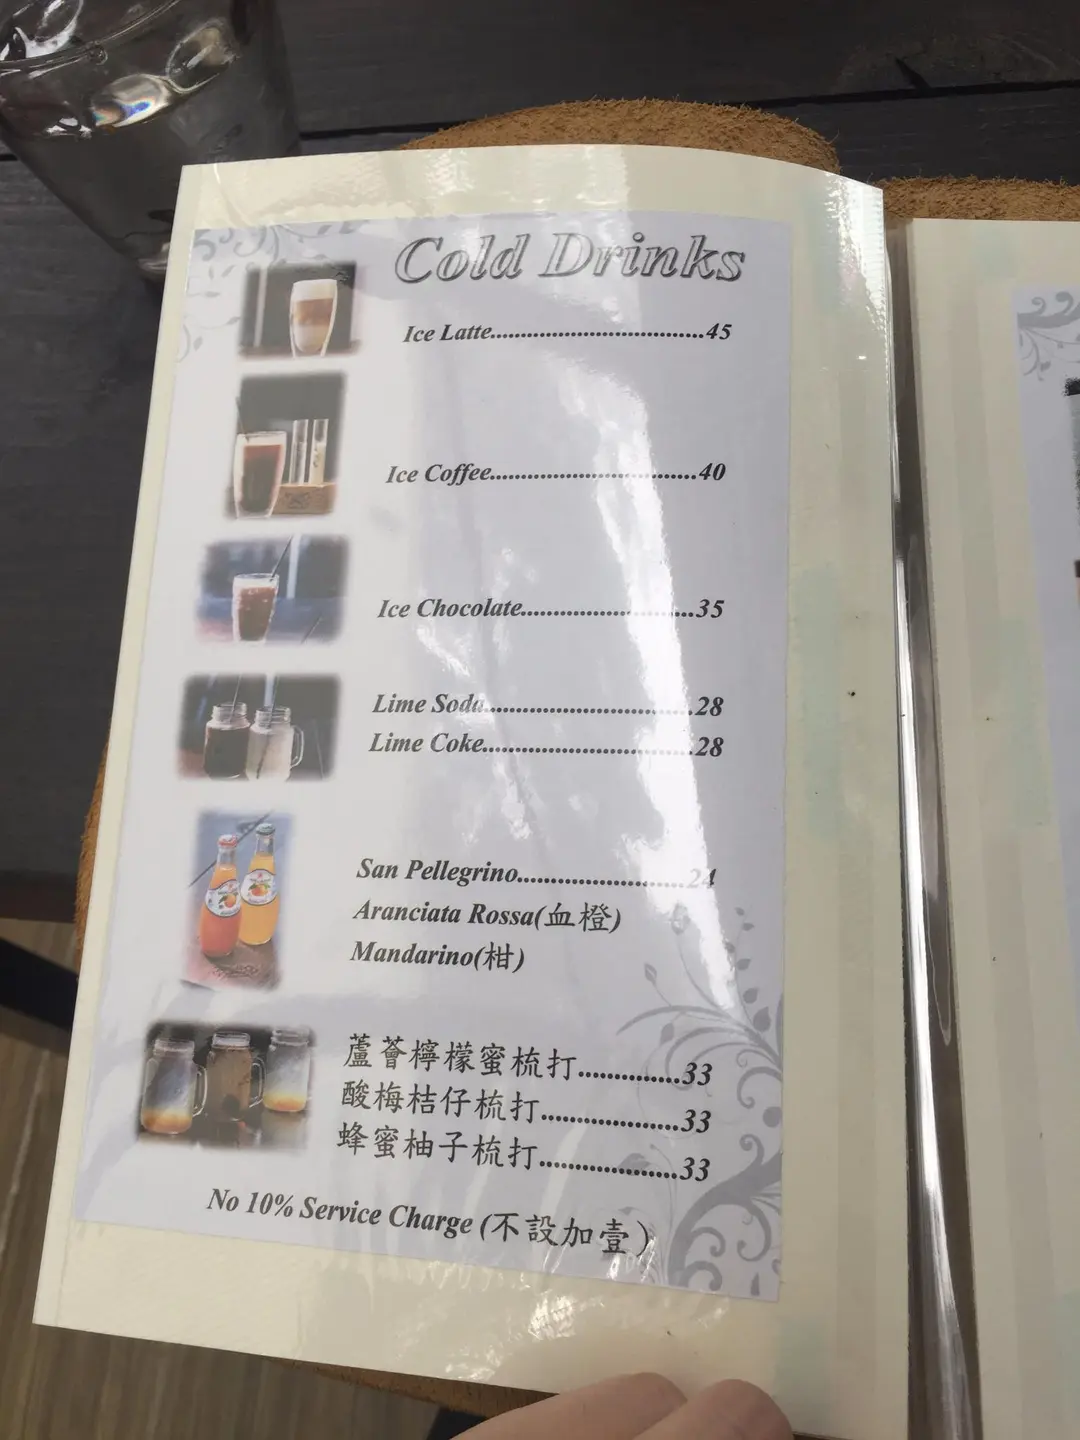 Cold Drinks
Ice Latte................................45
Ice Coffee...............................40
Ice Chocolate..........................35
Lime Soda................................28
Lime Coke................................28
San Pellegrino.........................24
Aranciata Rossa(血橙)
Mandarino(柑)
蘆薈檸檬蜜梳打...............33
酸梅桔仔梳打....................33
蜂蜜柚子梳打....................33
No 10% Service Charge (不設加壹)